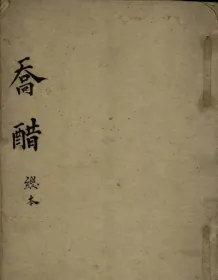 喬醋
總本